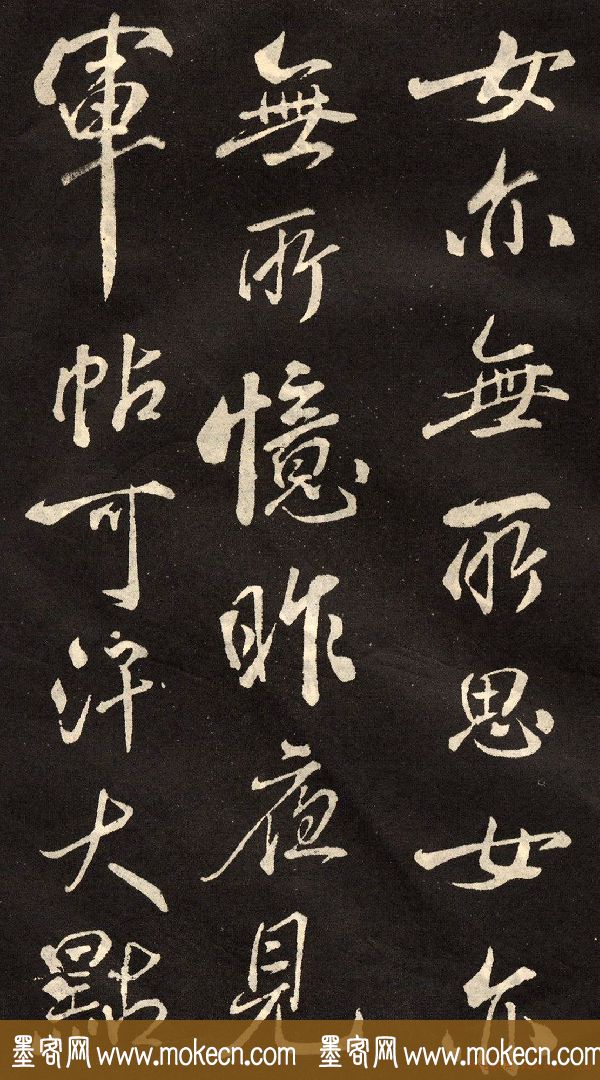 女亦無所思女亦
無所憶昨夜見
軍帖可汗大點
墨客网 www.mokecn.com 墨客网 www.mokecn.com